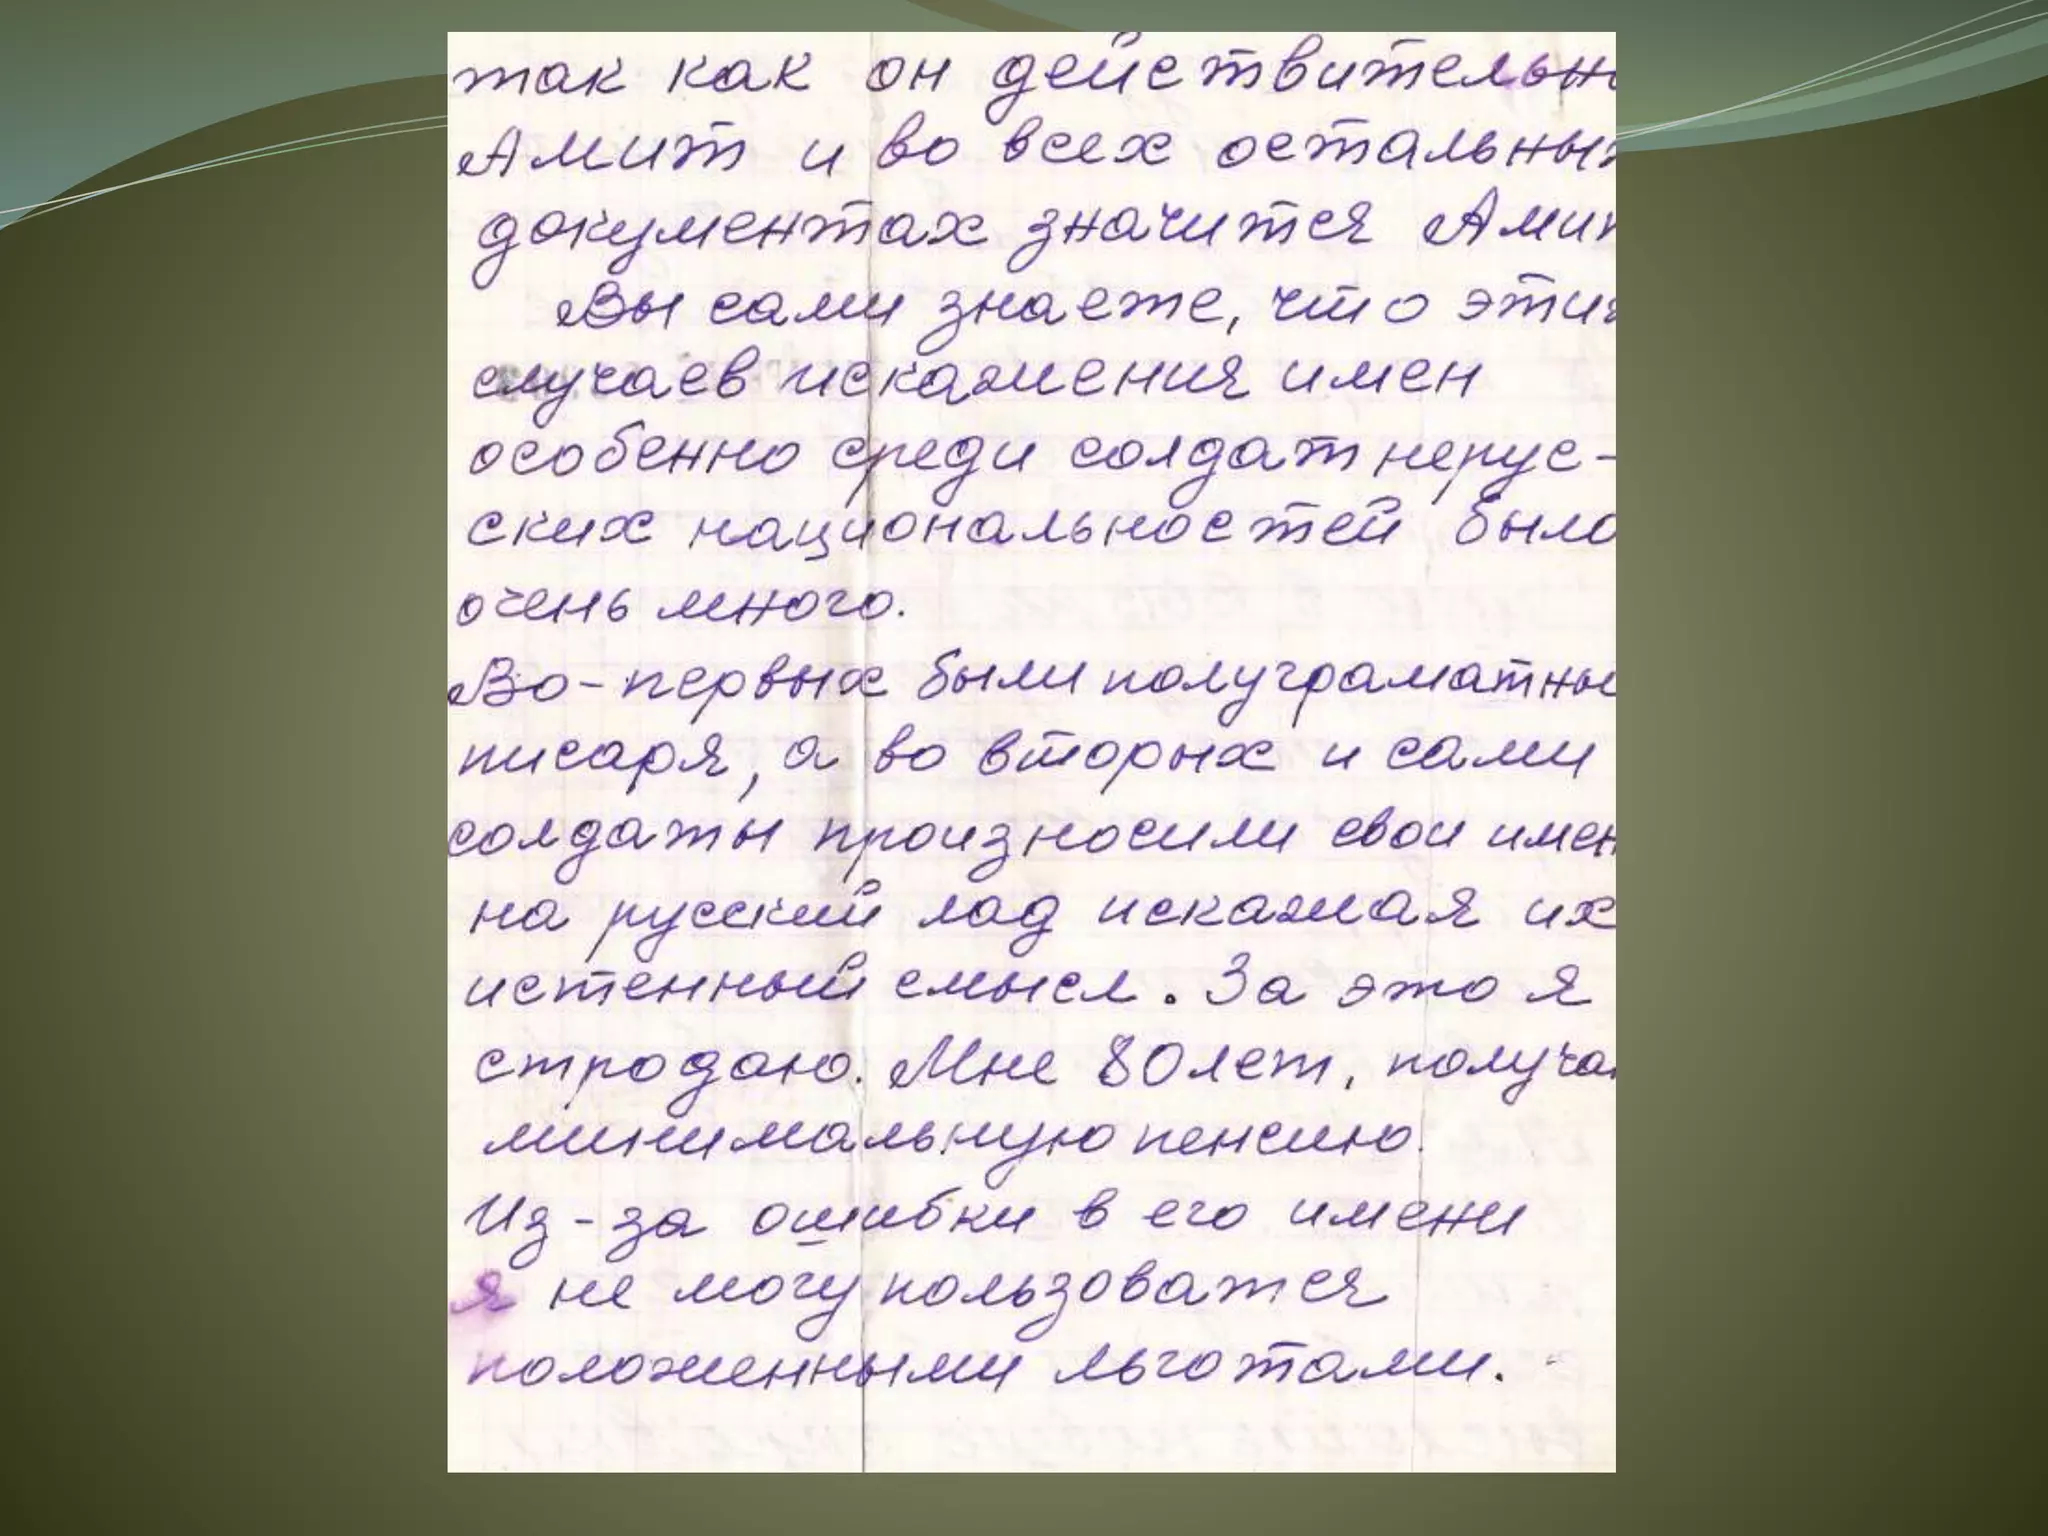 так как он действительно
Амит и во всех остальных
документах значится Амит
Вы сами знаете, что этих
случаев искажения имен
особенно среди солдат нерус-
ских национальностей было
очень много.
Во-первых были полуграматны
писаря, а во вторых и сами
солдаты произносили свои имен
на русский лад искажая их
истенный смысл. За это я
стродаю. Мне 80 лет, получа
минимальную пенсию.
Из-за ошибки в его имени
я не могу пользоватся
положенными льготами.